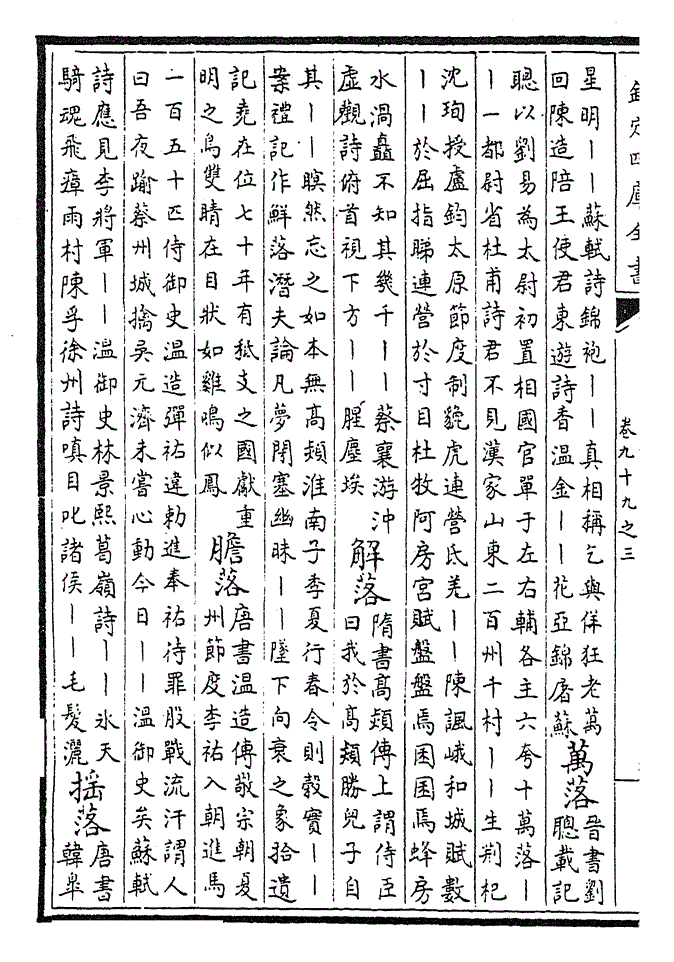 欽定四庫全書
卷九十九之三
星明——蘇軾詩錦袍——真相稱乞與佯狂老萬
回陳造陪王使君東遊詩香温金——花亞錦屠蘇
萬落
晉書劉
聰載記
聰以劉易為太尉初置相國官單于左右輔各主六夸十萬落—
—一都尉省杜甫詩君不見漢家山東二百州千村——生荆杞
沈珣授盧鈞太原節度制貔虎連營氐羌——陳諷峨和城賦數
——於屈指睇連營於寸目杜牧阿房宫賦盤盤焉囷囷焉蜂房
水渦矗不知其幾千——蔡襄游沖
虚觀詩俯首視下方——腥塵埃
解落
隋書高熲傳上謂侍臣
曰我於高熲勝兒子自
其——瞑然忘之如本無高熲淮南子季夏行春令則穀實——
案禮記作鮮落潛夫論凡夢閉塞幽昧——墜下向衰之象拾遺
記堯在位七十年有秪支之國獻重
明之鳥雙睛在目狀如雞鳴似鳳
膽落
唐書温造傳敬宗朝夏
州節度李祐入朝進馬
一百五十匹侍御史温造彈祐違勅進奉祐待罪股戰流汗謂人
曰吾夜踰蔡州城擒吳元濟未嘗心動今日——温御史矣蘇軾
詩應見李將軍——温御史林景熙葛嶺詩——氷天
騎魂飛瘴雨村陳孚徐州詩嗔目叱諸侯——毛髮灑
摇落
唐書
韓臯